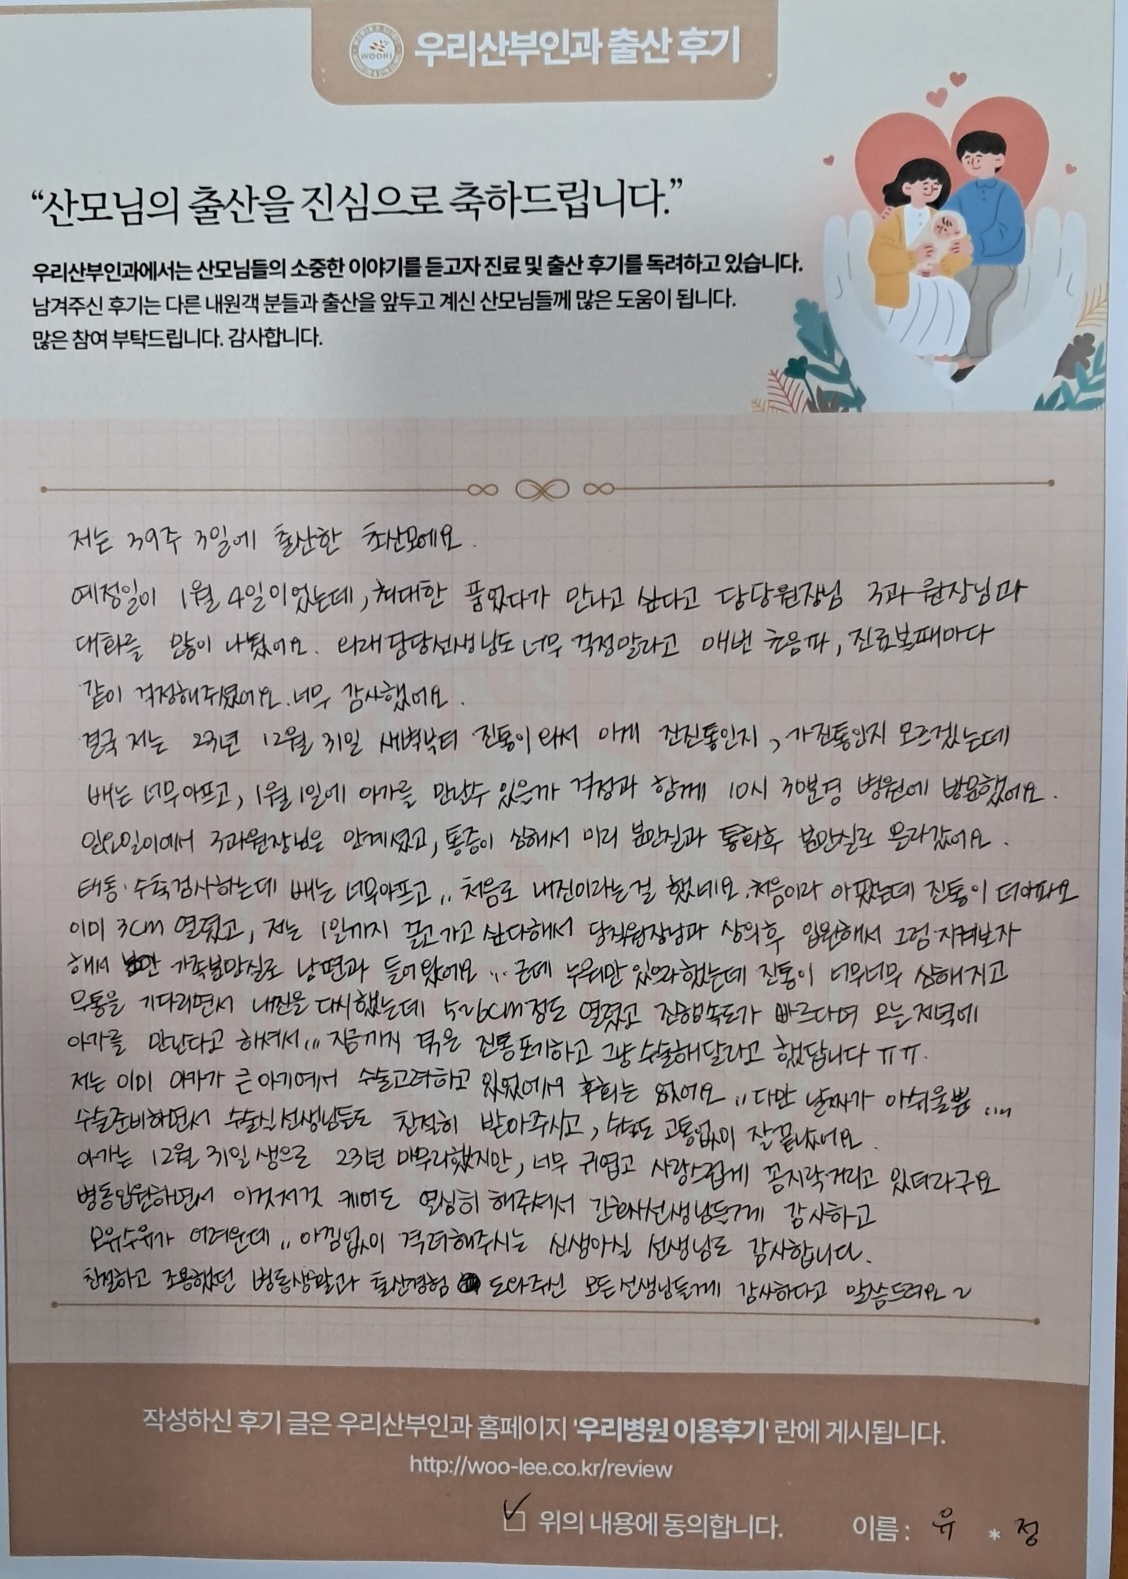 우리산부인과 출산 후기
WOORI
“산모님의 출산을 진심으로 축하드립니다.”
우리산부인과에서는 산모님들의 소중한 이야기를 듣고자 진료 및 출산 후기를 독려하고 있습니다.
남겨주신 후기는 다른 내원객 분들과 출산을 앞두고 계신 산모님들께 많은 도움이 됩니다.
많은 참여 부탁드립니다. 감사합니다.
저는 39주 3일에 출산한 초산모에요.
예정일이 1월 4일이었는데, 최대한 품었다가 만나고 싶다고 담당원장님 3과 원장님과
대화를 많이 나눴어요. 외래 담당선생님도 너무 걱정말라고 매번 초음파, 진료볼때마다
같이 걱정해주셨어요. 너무 감사했어요.
결국 저는 23년 12월 31일 새벽부터 진통이 와서 이게 진진통인지, 가진통인지 모르겠는데
배는 너무아프고, 1월 1일에 아가를 만날수 있을까 걱정과 함께 10시 30분경 병원에 방문했어요.
일요일이여서 3과원장님은 안계셨고, 통증이 심해서 미리 분만실과 통화후 분만실로 올라갔어요.
태동·수축검사하는데 배는 너무아프고,, 처음으로 내진이라는걸 했네요. 처음이라 아팠는데 진통이 더아파요
이미 3cm 열렸고, 저는 1일까지 끌고가고 싶다해서 당직원장님과 상의후 입원해서 그럼 지켜보자
해서 가족분만실로 남편과 들어왔어요... 근데 누워만 있으라했는데 진통이 너무너무 심해지고
무통을 기다리면서 내진을 다시했는데 5~6cm정도 열렸고 진행속도가 빠르다며 오늘 저녁에
아가를 만난다고 하셔서,,, 지금까지 겪은 진통포기하고 그냥 수술해달라고 했답니다 ㅠㅠ.
저는 이미 아가가 큰 아기여서 수술고려하고 있었어서 후회는 없어요,, 다만 날짜가 아쉬울뿐 ...
수술준비하면서 수술실선생님들도 친절히 받아주시고, 수술도 고통없이 잘끝났어요.
아가는 12월 31일 생으로 23년 마무리했지만, 너무 귀엽고 사랑스럽게 꼼지락거리고 있더라구요
병동입원하면서 이것저것 케어도 열심히 해주셔서 간호사선생님들께 감사하고
모유수유가 어려운데,, 아낌없이 격려해주시는 신생아실 선생님도 감사합니다.
친절하고 조용했던 병동생활과 출산경험 도와주신 모든선생님들께 감사하다고 말씀드려요~
작성하신 후기 글은 우리산부인과 홈페이지 '우리병원 이용후기' 란에 게시됩니다.
http://woo-lee.co.kr/review
✓ 위의 내용에 동의합니다. 이름 : 유 * 정